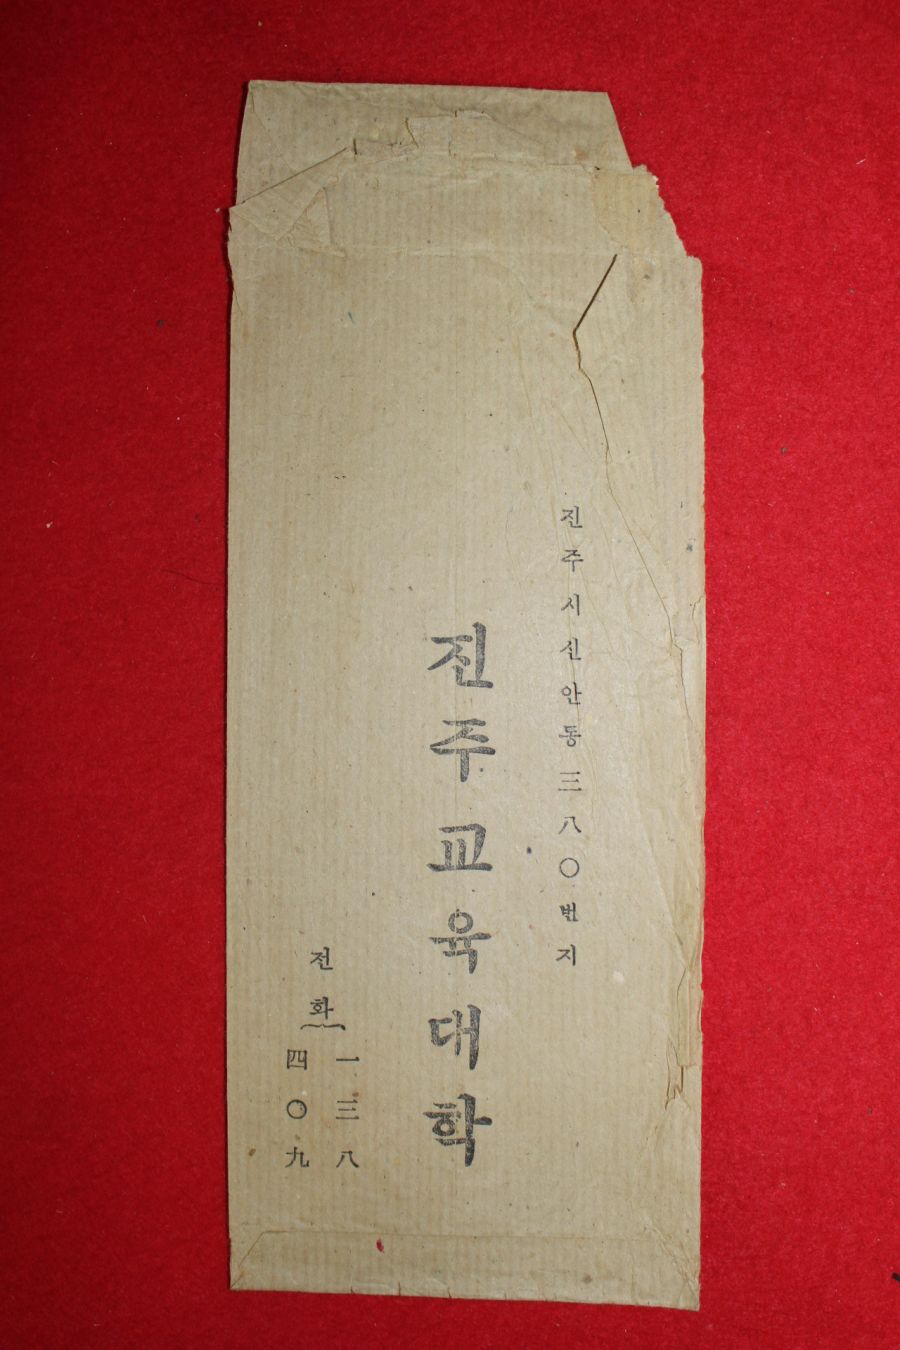 진주시신안동三八〇번지
진주교육대학
전화
一三八
四〇九